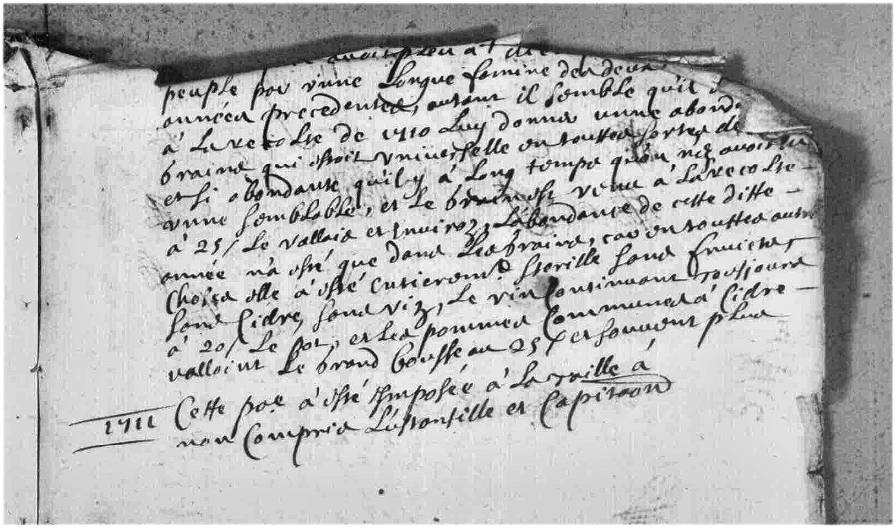 avoit pleu a
peuple par vnne longue famine des deux
années precedentes, autant il semble qu'il
à la recolte de 1710 luy donner vnne abond
graine qui estoit vniverselle en touttes sortes de
et si abondante qu'il y à long temps qu'on n'en avoit vu
vnne semblable, et le grain est venu à la recolte
à 25s le vallais et environ, L'abondance de cette ditte
année n'a esté que dans les grains, car en touttes autre
choses elle à esté entierem.t sterille sans fruicts
sans Cidre, sans vin, le vin continuant toujours
à 20s le pot, et les pommes communes à Cidre
valloint le grand bousseau 25s et souvent plus
1711 Cette p.oe à esté imposée à la Taille à
non compris L'ustansille et Capitaon